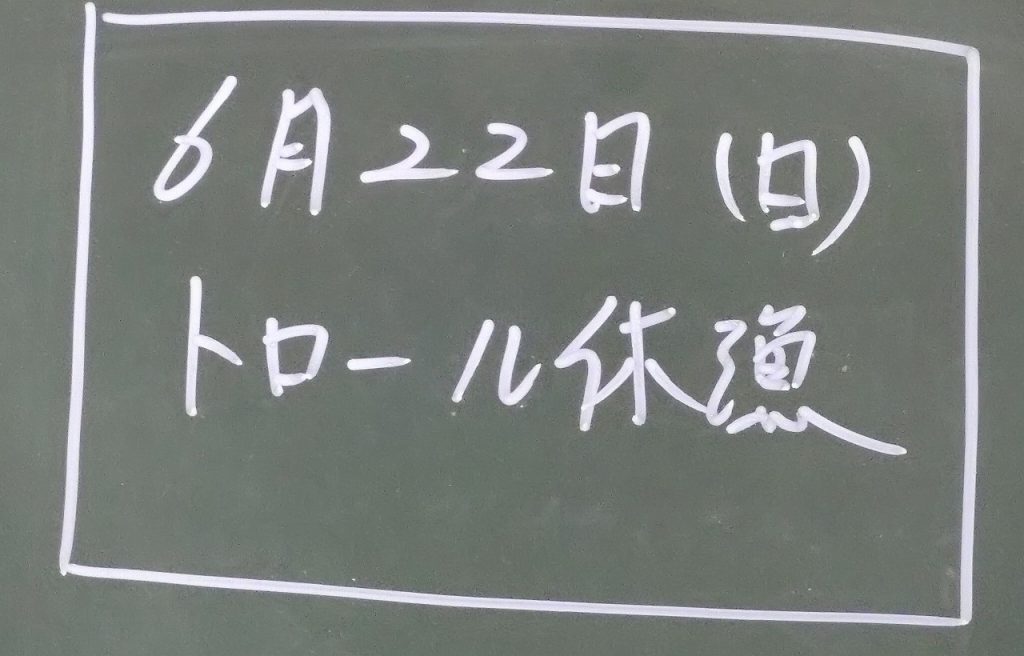 6月22日(日)
トロール休漁